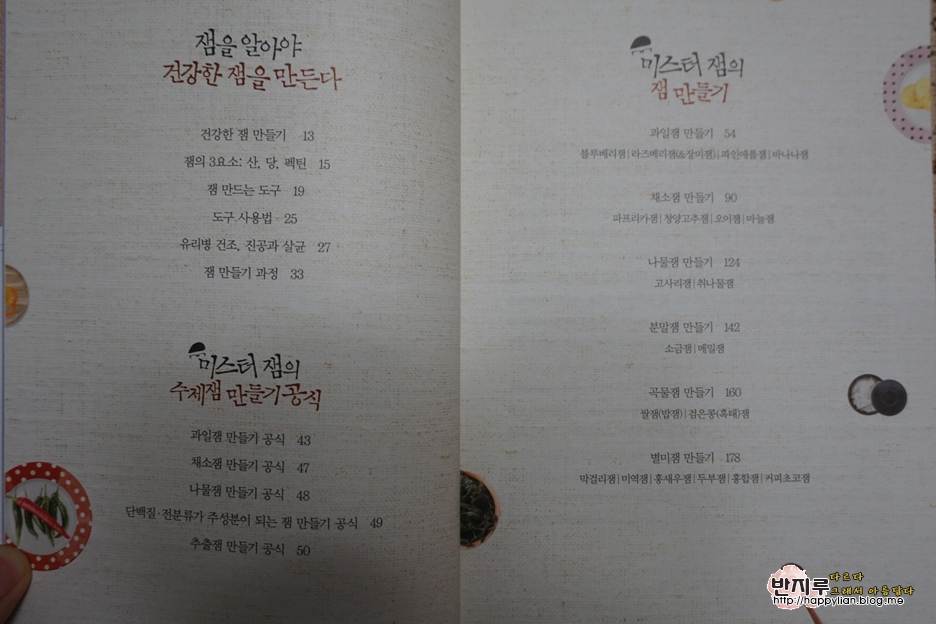 잼을 알아야
건강한 잼을 만든다
건강한 잼 만들기 13
잼의 3요소; 산, 당, 펙틴 15
잼 만드는 도구 19
도구 사용법 25
유리병 건조, 진공과 살균 27
잼 만들기 과정 33
미스터 잼의
수제잼 만들기 공식
과일잼 만들기 공식 43
채소잼 만들기 공식 47
나물잼 만들기 공식 48
단백질·전분류가 주성분이 되는 잼 만들기 공식 49
추출잼 만들기 공식 50
미스터 잼의
잼 만들기
과일잼 만들기 54
블루베리잼|라즈베리잼(&장미잼)|파인애플잼|바나나잼
채소잼 만들기 90
파프리카잼|청양고추잼|오이잼|마늘잼
나물잼 만들기 124
고사리잼|취나물잼
분말잼 만들기 142
소금잼|메밀잼
곡물잼 만들기 160
쌀잼(밥잼)|검은콩(흑태)잼
별미잼 만들기 178
막걸리잼|미역잼|홍새우잼|두부잼|홍합잼|커피초코잼
반지루 다르다
그래서 아름답다
http://happylian.blog.me